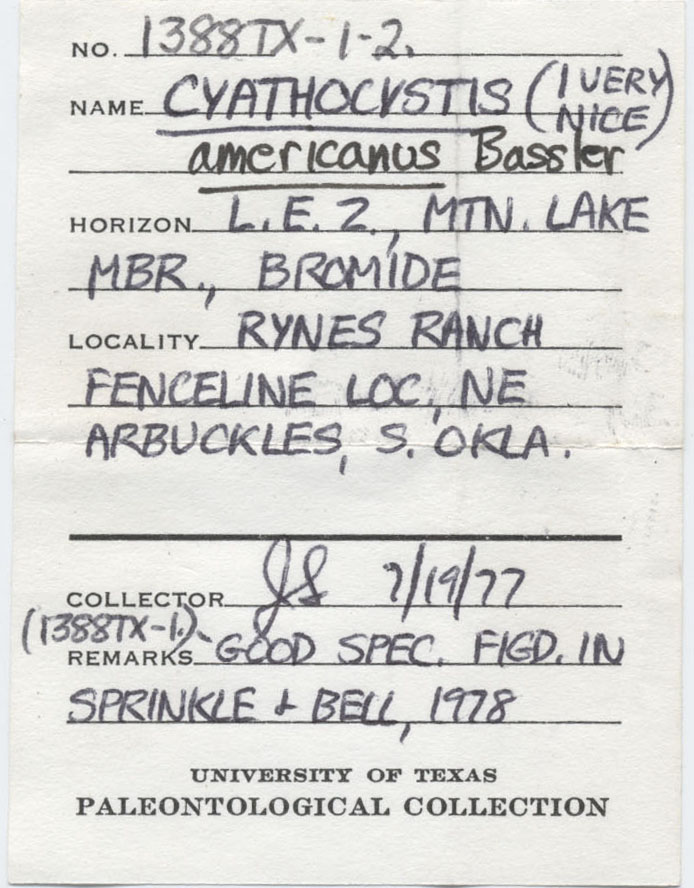 NO. 1388TX-1-2.
NAME CYATHOCYSTIS (1 VERY NICE)
americanus Bassler
HORIZON L.E.Z., MTN. LAKE
MBR., BROMIDE
LOCALITY RYNES RANCH
FENCELINE LOC, NE
ARBUCKLES, S. OKLA.
COLLECTOR JS 7/19/77
(1388TX-1.)
REMARKS GOOD SPEC. FIGD. IN
SPRINKLE & BELL, 1978
UNIVERSITY OF TEXAS
PALEONTOLOGICAL COLLECTION